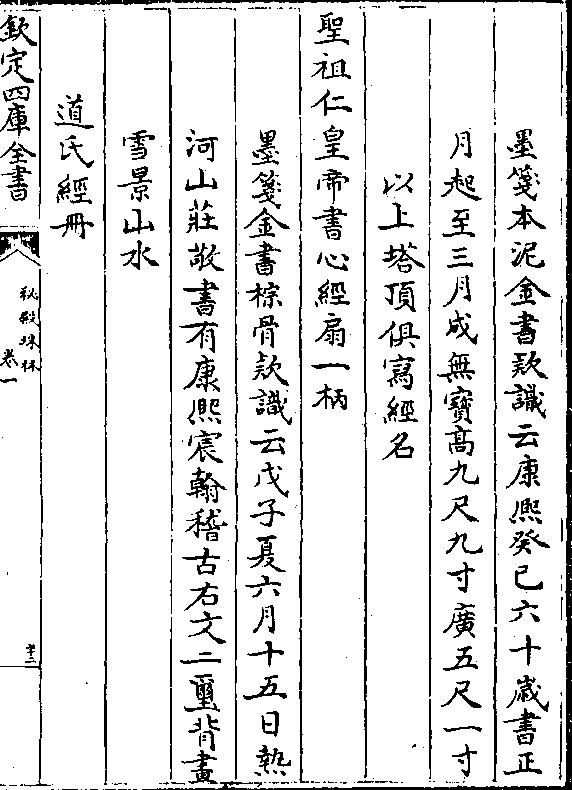 墨箋本泥金書款識云康熙癸巳六十歲書正
月起至三月成無寶高九尺九寸廣五尺一寸
以上塔頂俱寫經名
聖祖仁皇帝書心經扇一柄
墨箋金書棕骨款識云戊子夏六月十五日熱
河山莊敬書有康熙宸翰稽古右文二璽背畫
雪景山水
道氏經冊
欽定四庫全書
秘殿珠林
卷一
十二